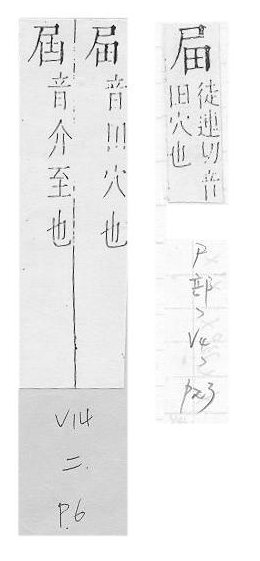 屇 音川穴也
届 音介至也
V14
二.
P.6
屇
徒連切音
旧穴也
尸部、V4、P23